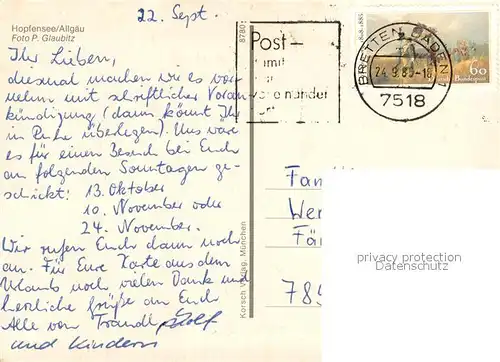 Hopfensee/Allgäu
Foto P. Glaubitz
22. Sept.
Ihr Lieben,
diesmal machen wir es vor-
nehm mit schriftlicher Voran-
kündigung (dann könnt Ihr
in Ruhe überlegen). Uns wäre
es für einen Besuch bei Euch
an folgenden Sonntagen ge-
schickt: 13. Oktober
10. November oder
24. November.
Wir rufen Euch dann noch
an. Für Eure Karte aus dem
Urlaub noch vielen Dank und
herzliche Grüße an Euch
Alle von Traudl, Rolf
und Kindern
8780
Korsch Verlag, München
Post-
mit
einander
BRETTEN, BADEN 1
24.9.85-18
7518
60
Fam
Wer
Fär
785
privacy protection
Datenschutz